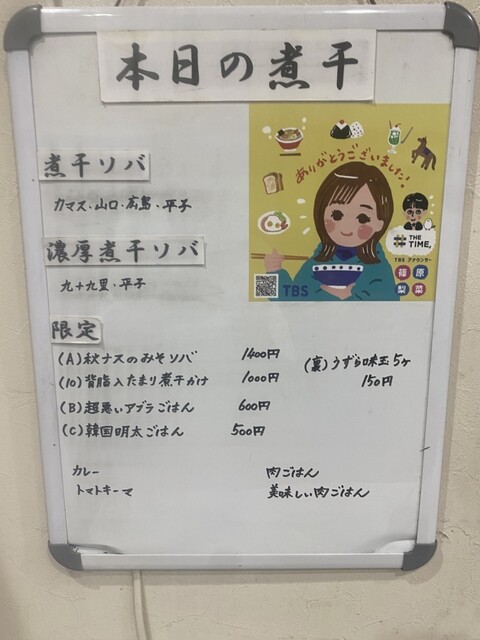 本日の煮干
煮干ソバ
カマス・山口・広島・平子
濃厚煮干ソバ
九十九里・平子
限定
(A)秋ナスのみそソバ 1400円
(10)背脂入たまり煮干かけ 1000円
(B)超悪いアブラごはん 600円
(C)韓国明太ごはん 500円
(裏)うずら味玉5ヶ
150円
カレー
トマトキーマ
肉ごはん
美味しい肉ごはん
ありがとうございました!
THE TIME,
TBS アナウンサー
篠原
梨菜
TBS